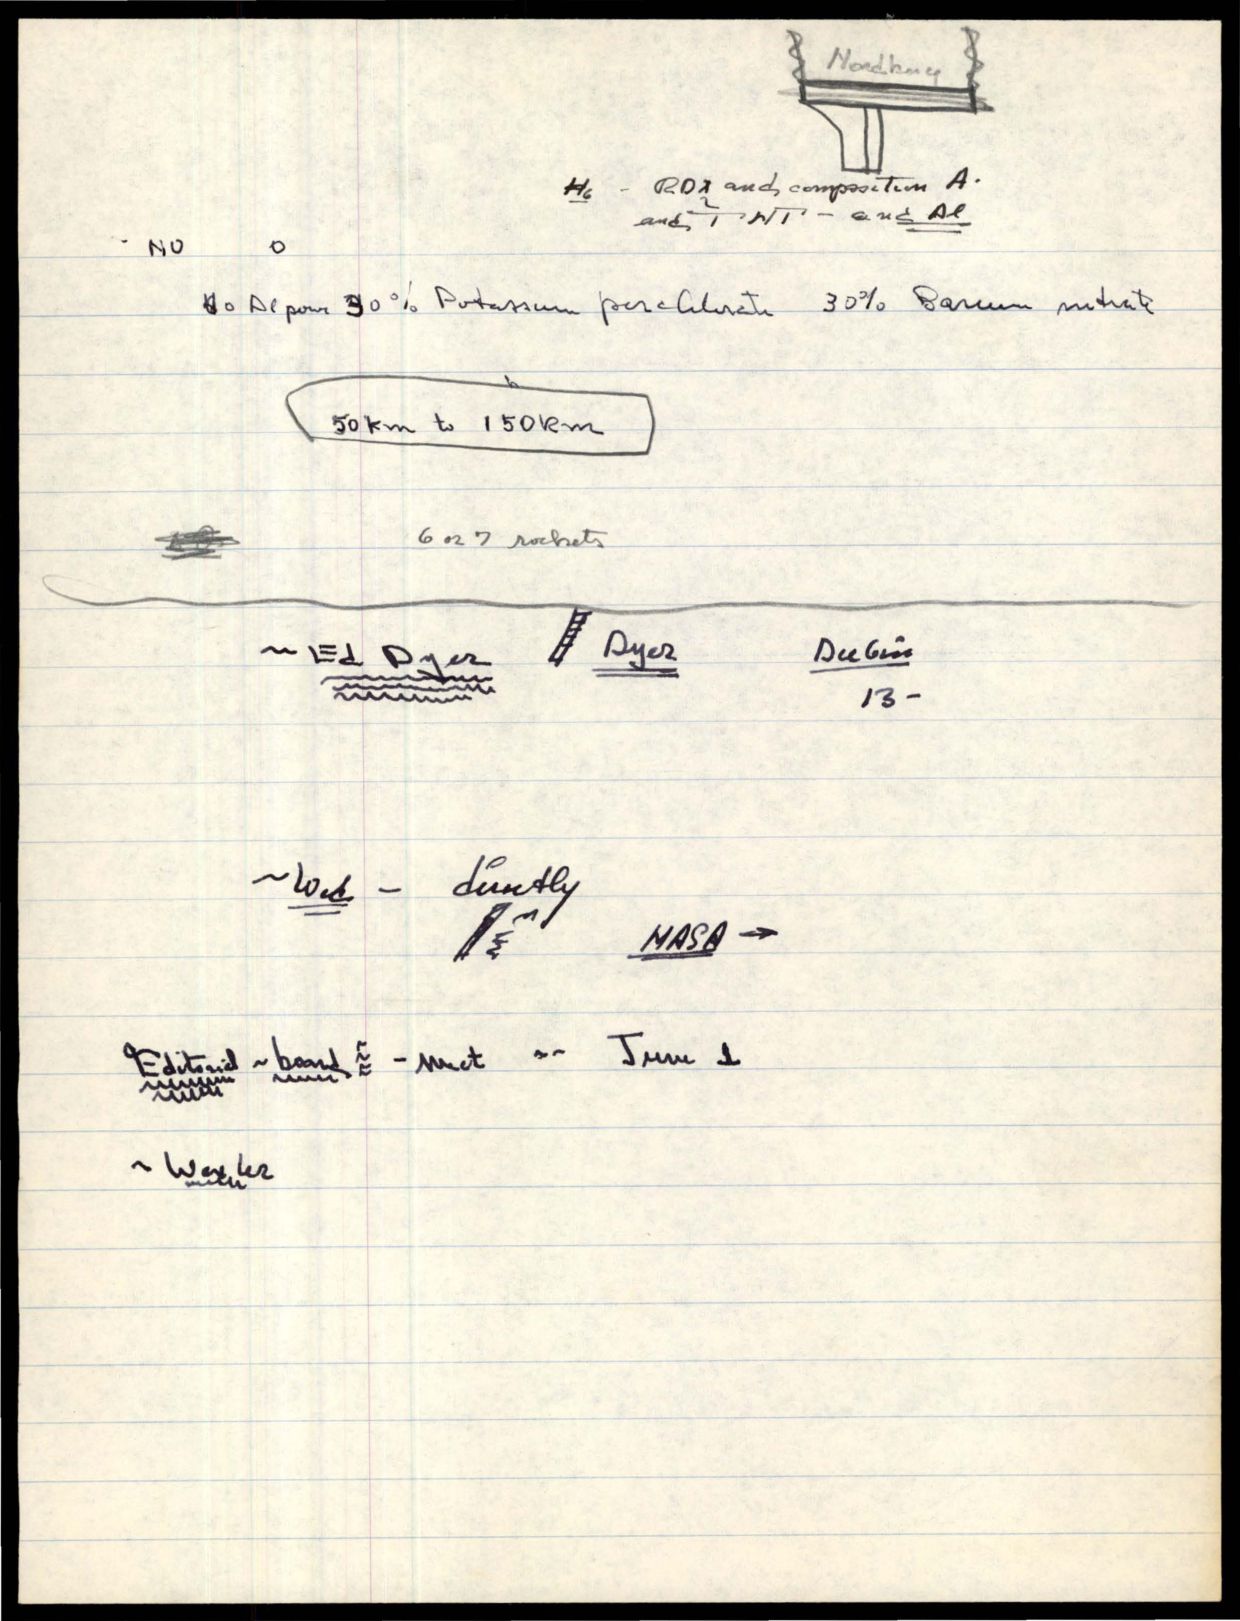 H6 - RDX and composition A.
and TNT - and Al
NO O
Al 30% Potassium perchlorate 30% Barium nitrate
50km to 150km
6 or 7 rockets
~ Ed Dyer Dyer Dubin
13-
~ - directly
NASA →
Editorial ~ board - meet -- June 1
~ Wexler